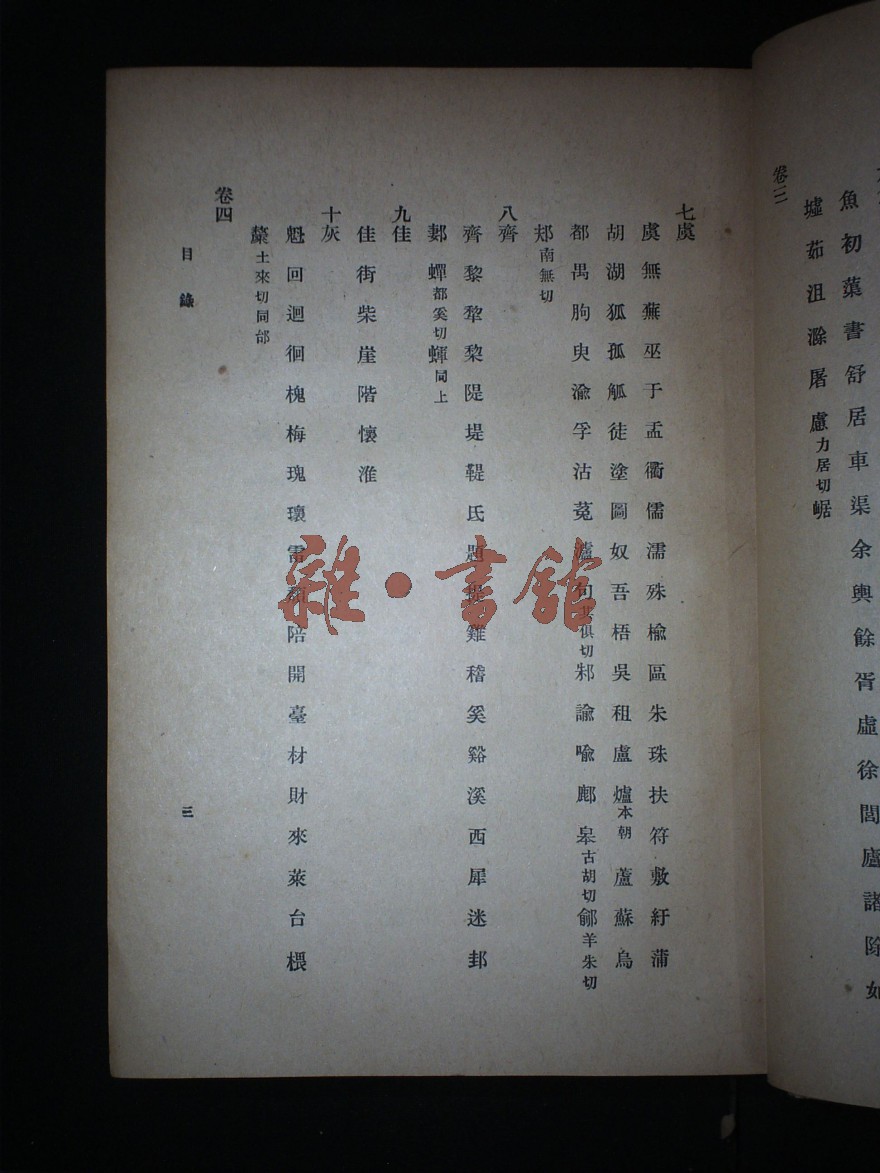 卷三
魚初蕖書舒居車渠余輿餘胥虛徐閭廬諸除如
墟茹沮滁屠慮力居切崌
七虞
虞無蕪巫于盂衢儒濡殊榆區朱珠扶符敷紆蒲
胡湖狐孤觚徒塗圖奴吾梧吳租盧爐本朝蘆蘇烏
都禺朐臾渝孚沽菟瀘句其俱切邾諭喻鄜皋古胡切鄃羊朱切
䢼南無切
八齊
齊黎犂棃隄堤鞮氐題提雞稽奚谿溪西犀迷邽
邞蟬都奚切同上
九佳
佳街柴崖階懷淮
十灰
魁回迴徊槐梅瑰瓌雷陪開臺材財來萊台椳
斄土來切同邰
卷四
目錄
三
雜·書館